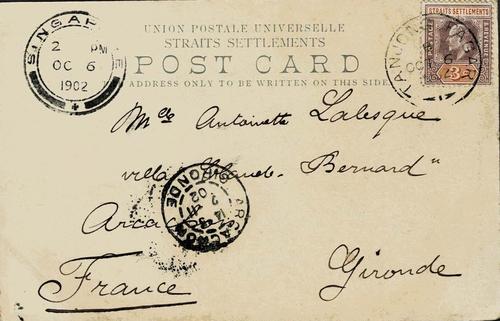 UNION POSTALE UNIVERSELLE
STRAITS SETTLEMENTS
POST CARD
ADDRESS ONLY TO BE WRITTEN ON THIS SIDE
SINGAP E
2 PM
OC 6
1902
STRAITS SETTLEMENTS
POSTAGE
REVENUE
3c
TANJONG PAGAR
OC 6
Mlle Antoinette Lalesque
villa "Claude-Bernard"
Arcachon
ARCACHON
GIRONDE
02
France
Gironde